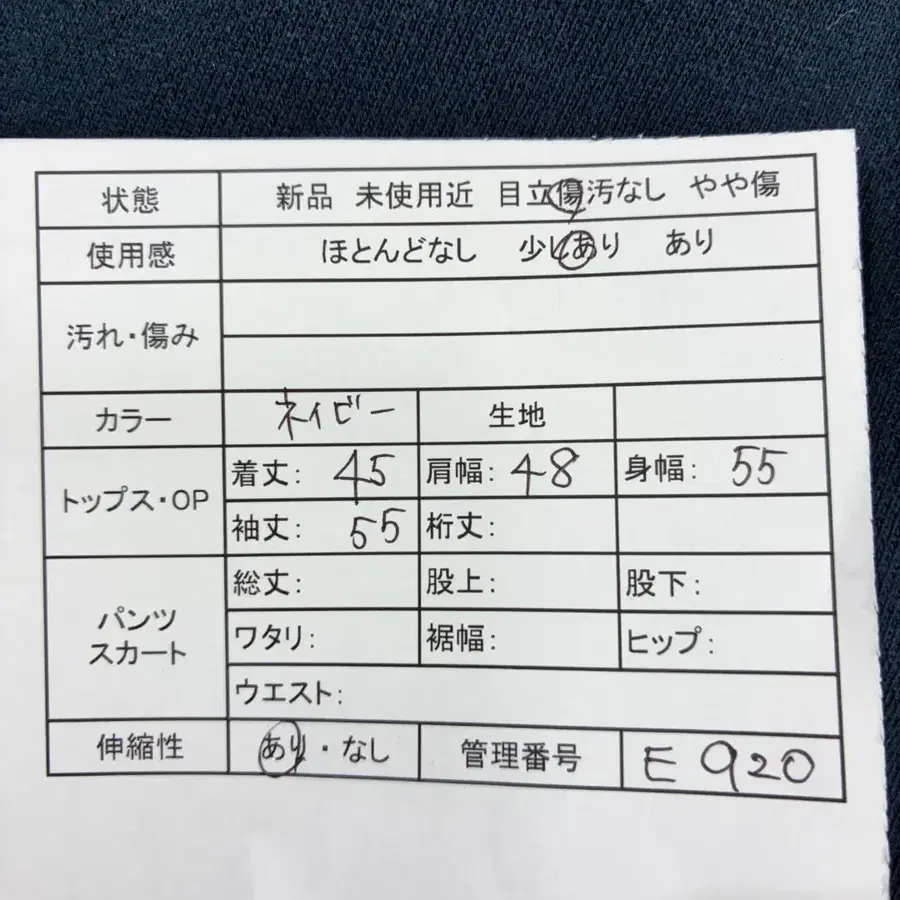 状態 新品 未使用近 目立傷汚なし やや傷
使用感 ほとんどなし 少しあり あり
汚れ・傷み
カラー ネイビー 生地
トップス・OP 着丈: 45 肩幅: 48 身幅: 55
袖丈: 55 裄丈:
パンツ スカート 総丈: 股上: 股下:
ワタリ: 裾幅: ヒップ:
ウエスト:
伸縮性 あり・なし 管理番号 E920